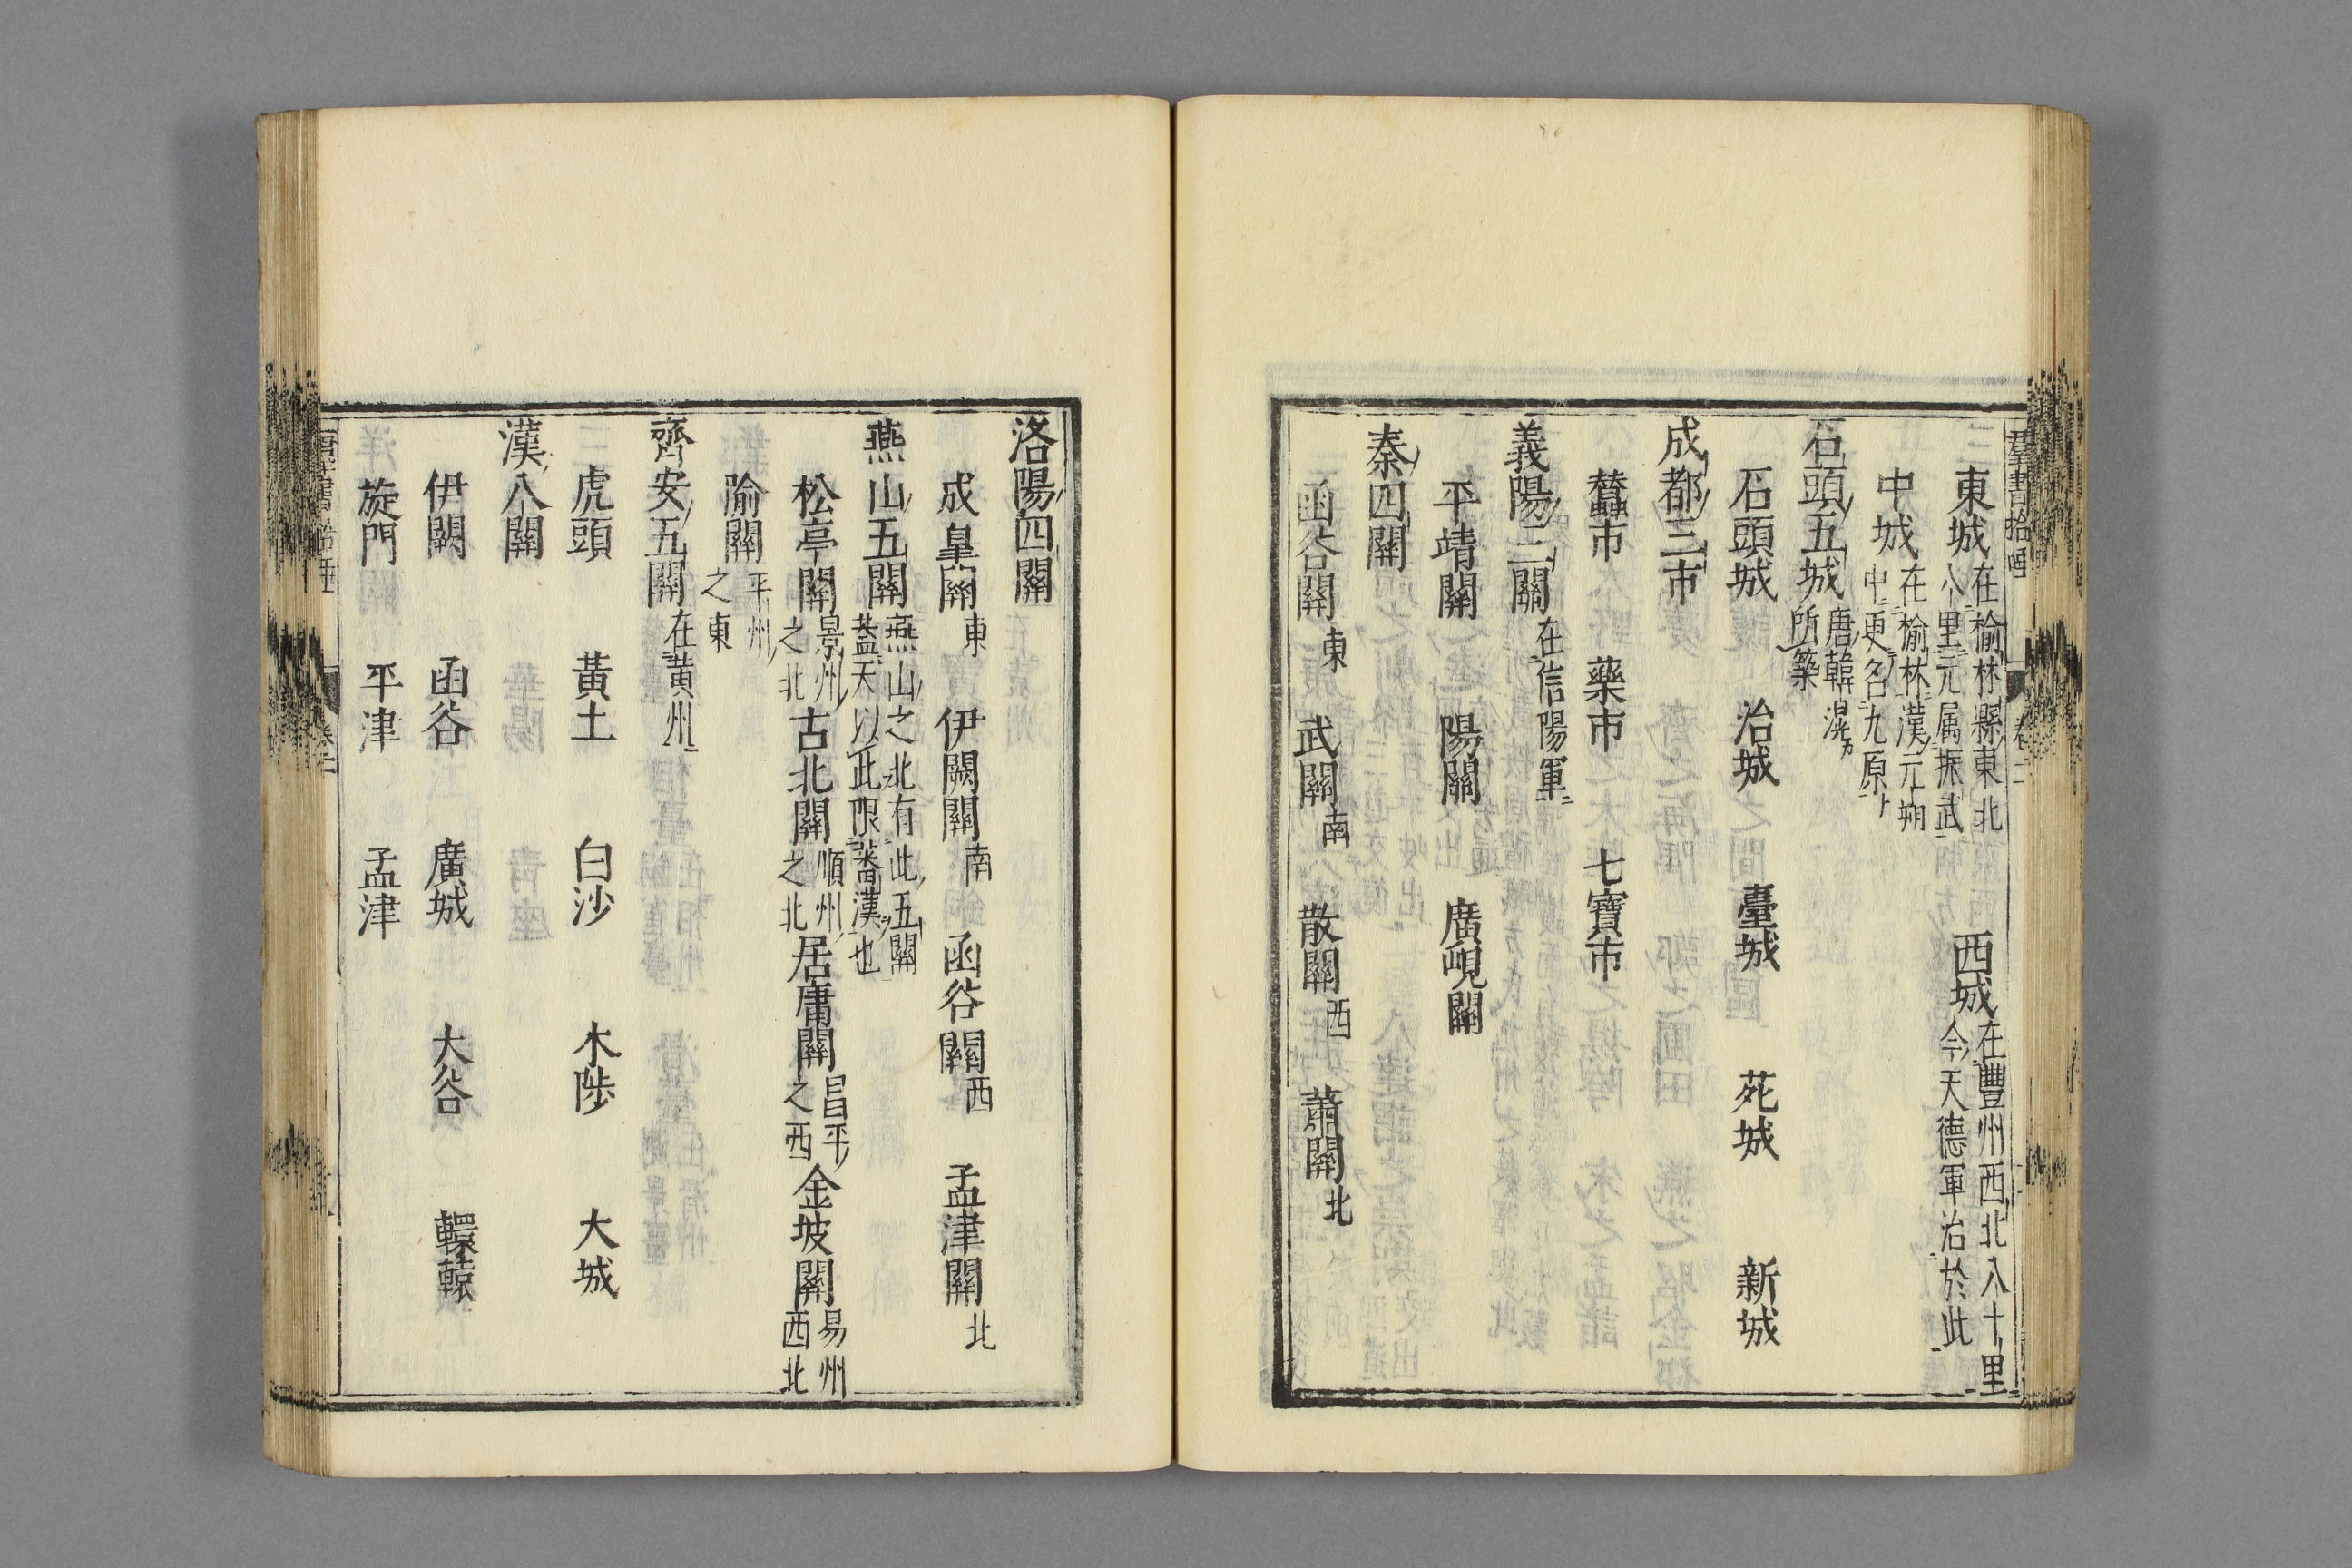 東城在榆林縣東北八里元属振武 西城在豐州西北八十里今天德軍治於此
中城在榆林漢元朔中更名九原
石頭五城唐韓滉所築
石頭城 冶城 臺城 苑城 新城
成都三市
蠶市 藥市 七寶市
義陽三關在信陽軍
平靖關 陽關 廣峴關
秦四關
函谷關東 武關南 散關西 蕭關北
洛陽四關
成皇關東 伊闕關南 函谷關西 孟津關北
燕山五關燕山之北有此五關蓋天以此限蕃漢也
松亭關景州之北 古北關順州之北 居庸關昌平之西 金坡關易州西北
隃關平州之東
齊安五關在黃州
虎頭 黃土 白沙 木陟 大城
漢八關
伊闕 函谷 廣城 大谷 轘轅
旋門 平津 孟津